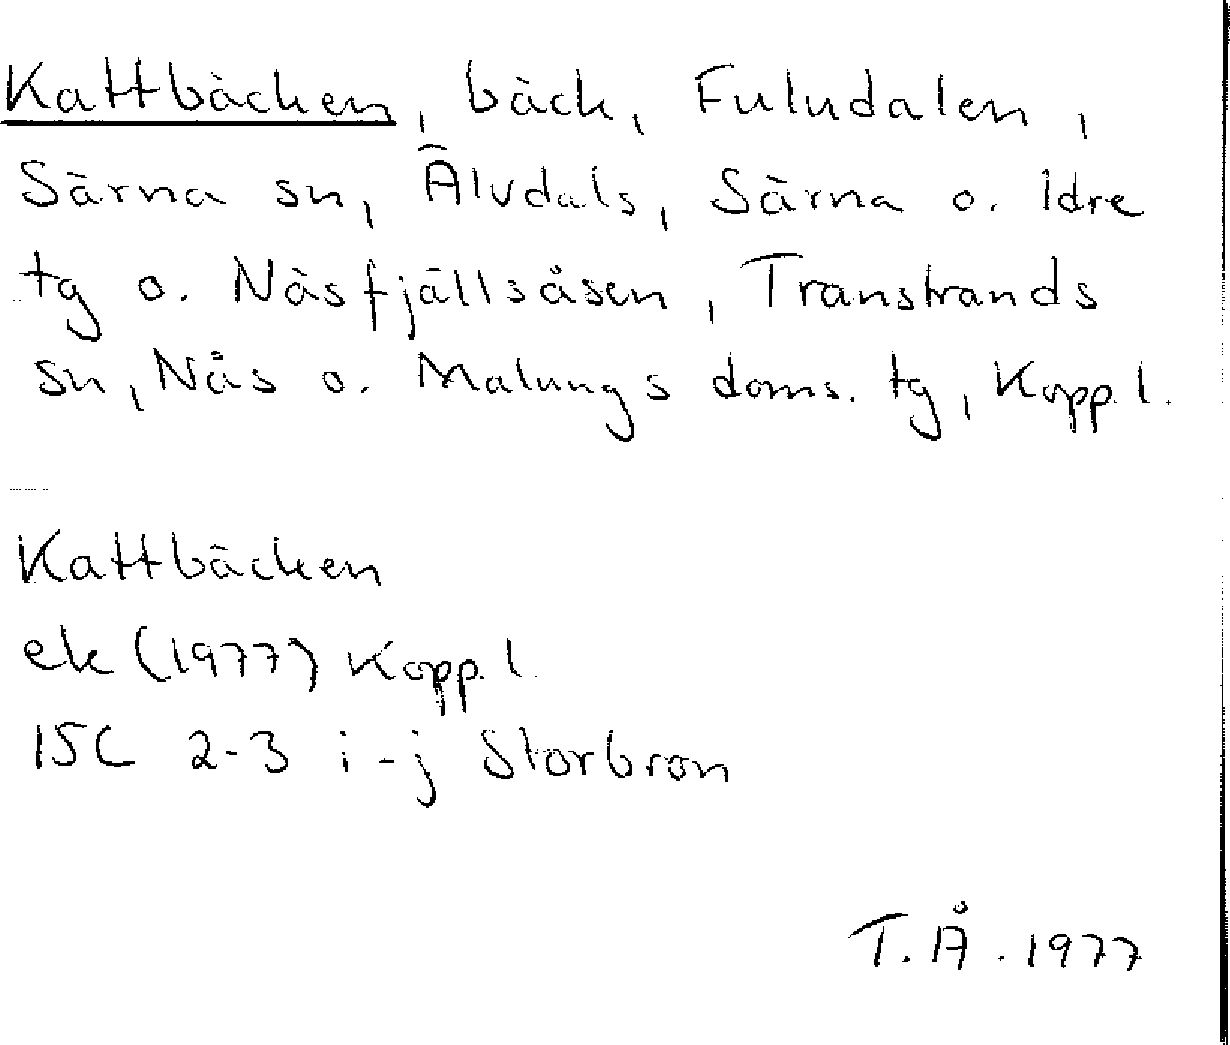 Kattbäcken, bäck, Fuludalen,
Särna sn, Älvdals, Särna o. Idre
tg o. Näsfjällsåsen, Transtrands
sn, Nås o. Malungs doms. tg, Kopp. l.
Kattbäcken
ek (1977) Kopp. l.
15C 2-3 i-j Storbron
T. Å. 1977